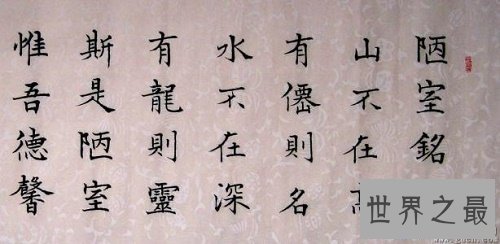 陋室銘
山不在高
有僊則名
水不在深
有龍則靈
斯是陋室
惟吾德馨
世界之最